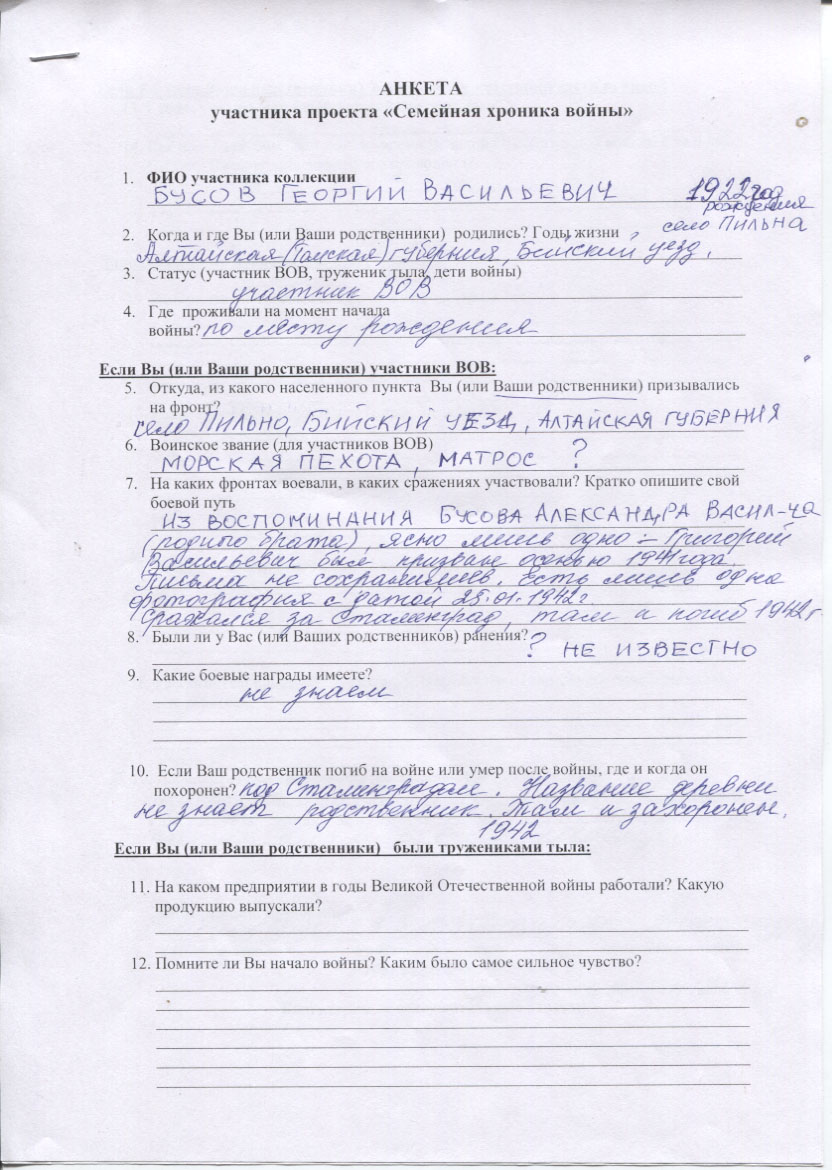 АНКЕТА
участника проекта «Семейная хроника войны»
1. ФИО участника коллекции
БУСОВ ГЕОРГИЙ ВАСИЛЬЕВИЧ 1922 год
рождения
2. Когда и где Вы (или Ваши родственники) родились? Годы жизни село Пильна
Алтайская (Томская) губерния, Бийский уезд.
3. Статус (участник ВОВ, труженик тыла, дети войны)
участник ВОВ
4. Где проживали на момент начала
войны? по месту рождения
Если Вы (или Ваши родственники) участники ВОВ:
5. Откуда, из какого населенного пункта Вы (или Ваши родственники) призывались
на фронт?
село Пильно, Бийский уезд, Алтайская губерния
6. Воинское звание (для участников ВОВ)
МОРСКАЯ ПЕХОТА, МАТРОС ?
7. На каких фронтах воевали, в каких сражениях участвовали? Кратко опишите свой
боевой путь
ИЗ ВОСПОМИНАНИЯ БУСОВА АЛЕКСАНДРА ВАСИЛ-ча
(родного брата), ясно лишь одно – Григорий
Васильевич был призван осенью 1941 года.
Письма не сохранились. Есть лишь одна
фотография с датой 25.01.1942г.
Сражался за Сталинград, там и погиб 1942г
8. Были ли у Вас (или Ваших родственников) ранения?
? НЕ ИЗВЕСТНО
9. Какие боевые награды имеете?
не знаем
10. Если Ваш родственник погиб на войне или умер после войны, где и когда он
похоронен? под Сталинградом. Название деревни
не знает родственник. Там и захоронен.
1942
Если Вы (или Ваши родственники) были тружениками тыла:
11. На каком предприятии в годы Великой Отечественной войны работали? Какую
продукцию выпускали?
12. Помните ли Вы начало войны? Каким было самое сильное чувство?